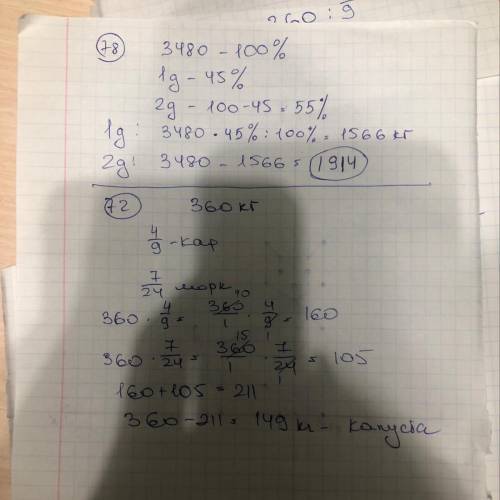 360 : 9
78 3480 - 100%
1g - 45%
2g - 100 - 45 = 55%
1g: 3480 · 45% : 100% = 1566 кг
2g: 3480 - 1566 = 1914
72 360 кг
4/9 - кар
7/24 морк
360 · 4/9 = 360/1 40 · 4/9 1 = 160
360 · 7/24 = 360/1 15 · 7/24 1 = 105
160 + 105 = 211
360 - 211 = 149 кг - капуста